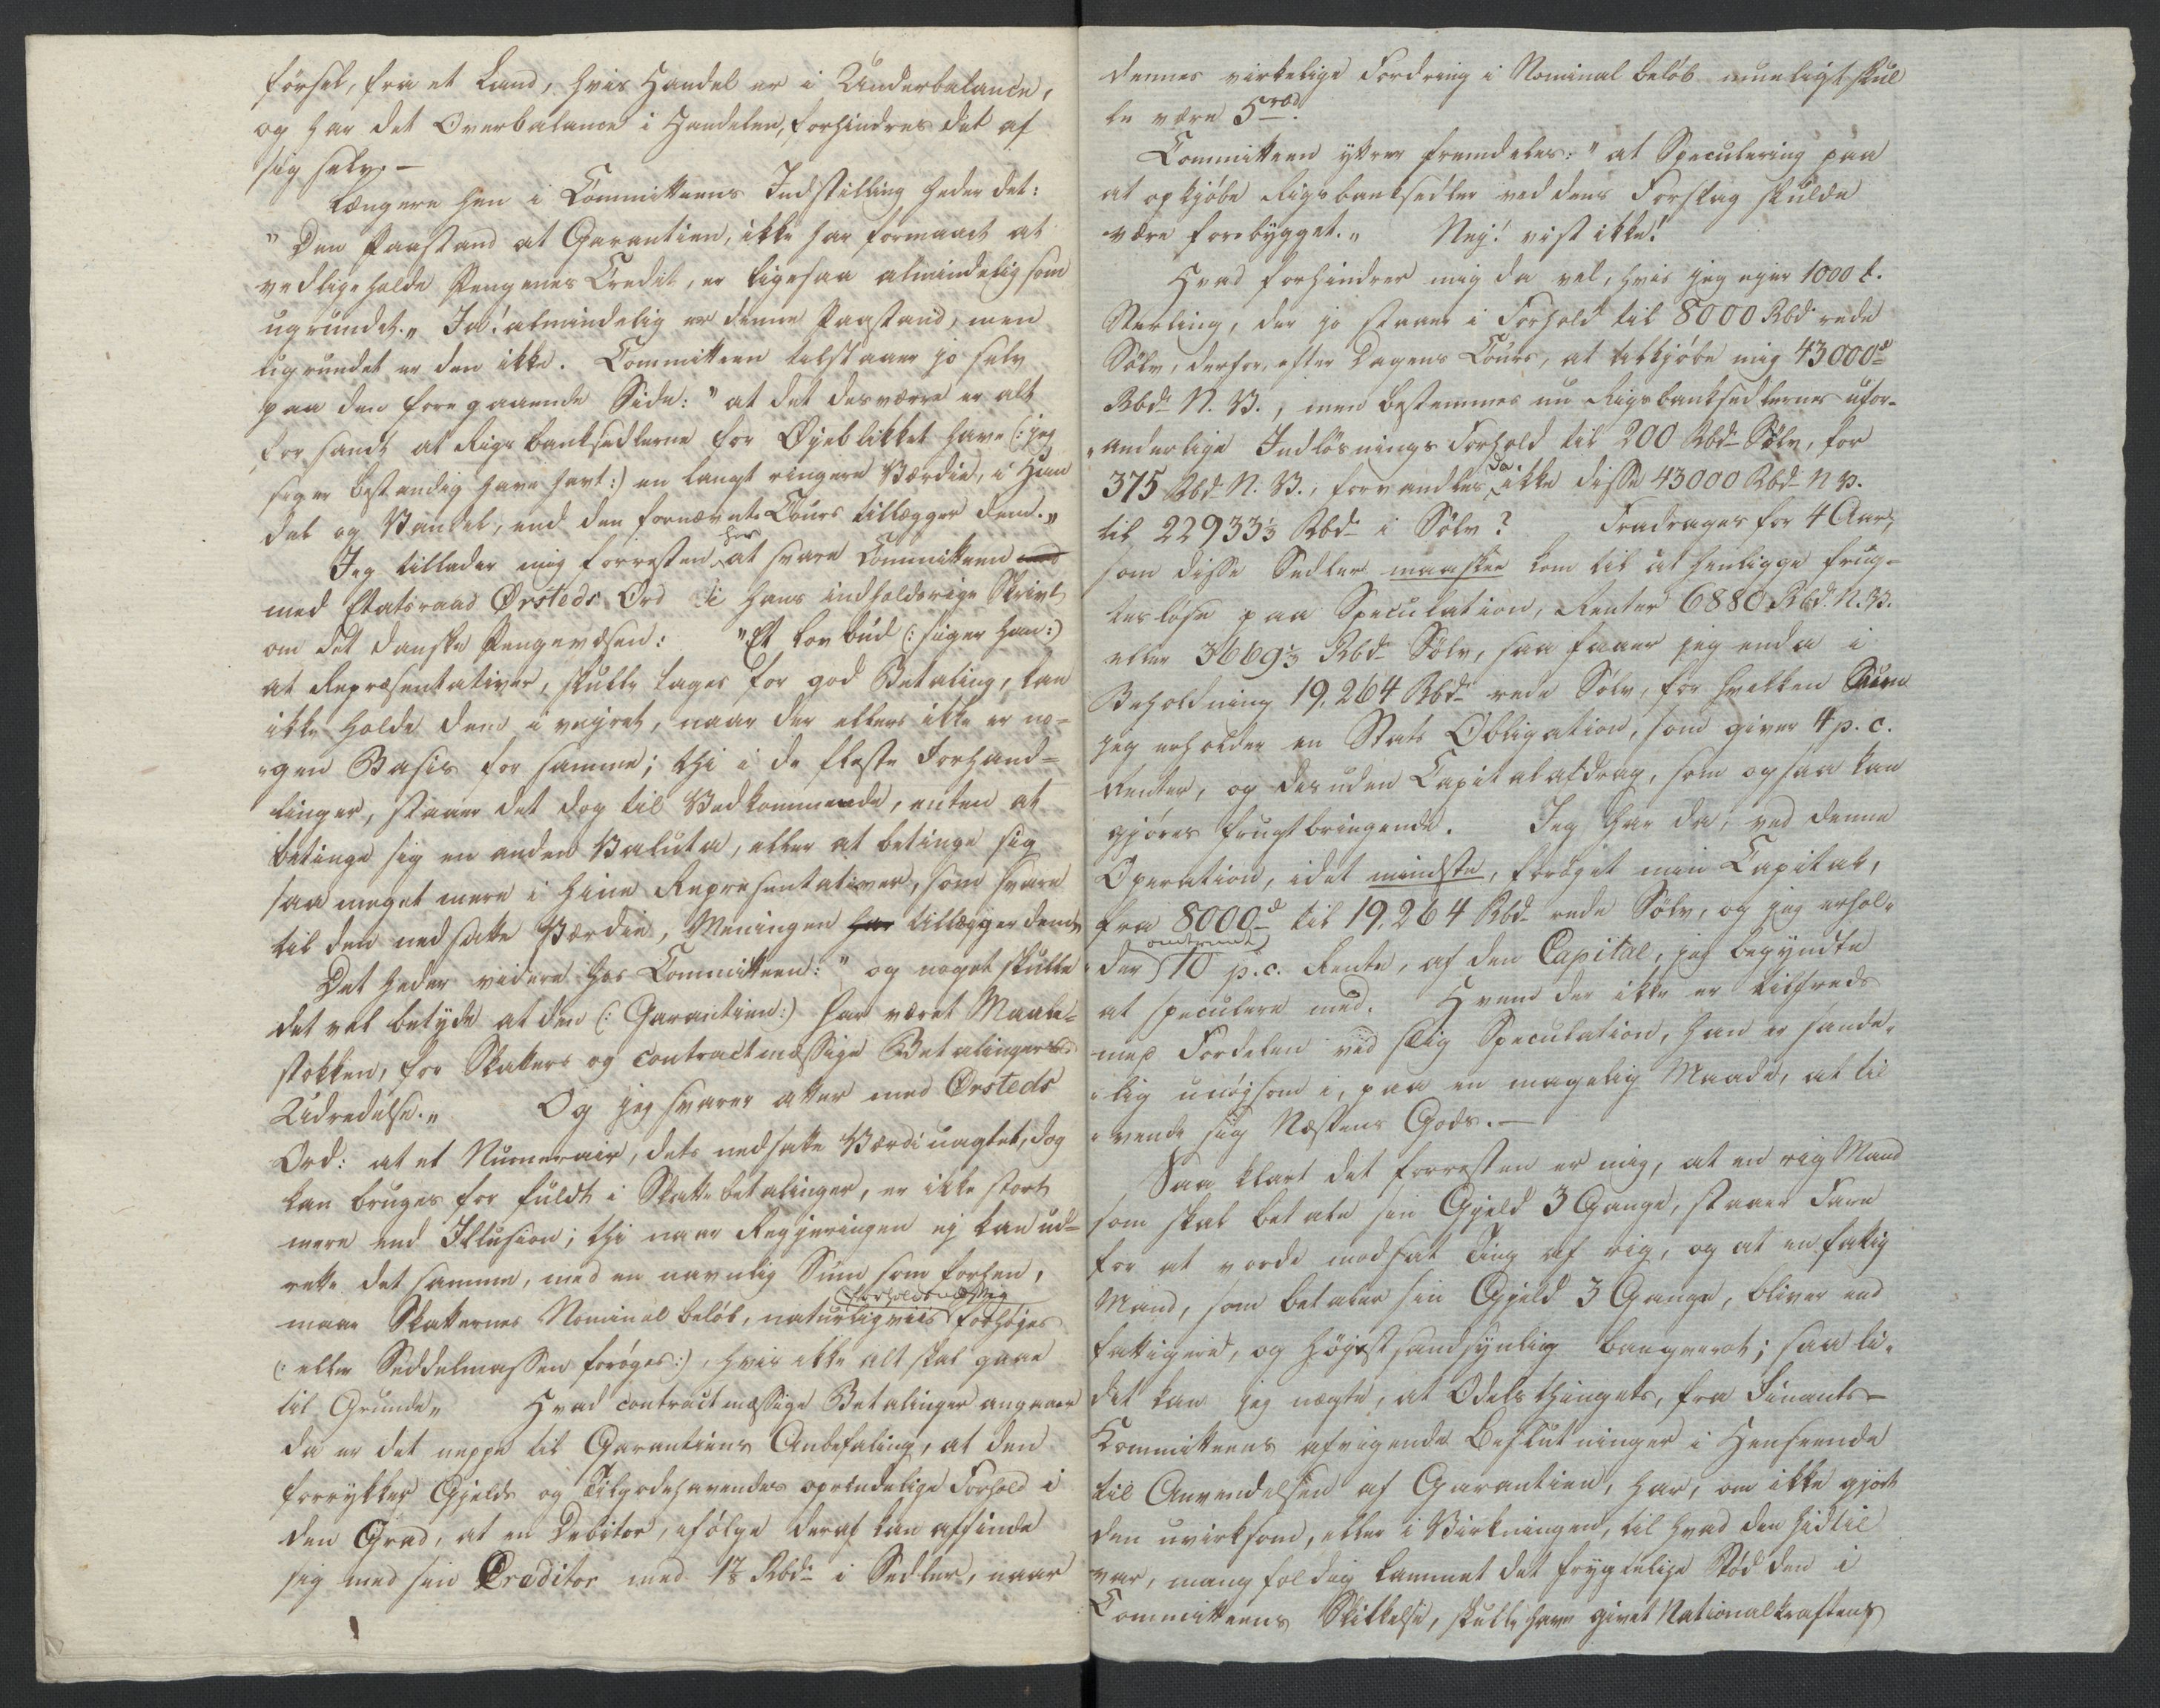 førsel, fra et Land, hvis Handel er i Underbalance,
og har det Overbalance i Handelen, forhindres det af
sig selv. —
Længere hen i Committeens Indstilling heder det:
" Den Paastand at Garantien, ikke har formaaet at
vedligeholde Pengenes Credit, er ligesaa almindelig som
ugrundet. „ Ja! almindelig er denne Paastand, men
ugrundet er den ikke. Committeen tilstaaer jo selv
paa den foregaaende Side: " at det desværre er alt
for sandt at Rigsbanksedlerne for Øjeblikket have (: jeg
siger bestandig have havt :) en langt ringere Værdie, i Han
del og Vandel, end den fornævnte Cours tillægger dem. „
Jeg tillader mig forresten her at svare Committeen
med Etatsraad Ørsteds Ord i hans indholdsrige Skrivt
om det danske Pengevæsen: " Et Lovbud (: siger han :)
at Repræsentativer, skulle tages for god Betaling, kan
ikke holde dem i vejret, naar der ellers ikke er no-
gen Basis for samme; thi i de fleste Forhand-
linger, staaer det dog til Vedkommende, enten at
betinge sig en anden Valuta, eller at betinge sig
saa meget mere i hine Repræsentativer, som svare
til den nedsatte Værdie, Meningen har tillægger dem „
Det heder videre hos Committeen: " og noget skulle
det vel betyde at den (: Garantien :) har været Maale-
stokken, for Skatters og contractmæssige Betalingers
Udredelse. „ Og jeg svarer atter med Ørsteds
Ord: at et Numerair, dets nedsatte Værdi uagtet, dog
kan bruges for fuldt i Skattebetalinger, er ikke stort
mere end Illusion; thi naar Regjeringen ej kan ud-
rette det samme, med en navnlig Sum som forhen,
maae Skatternes Nominal beløb, naturligviis forholdsmæssig forhøjes
(: eller Seddelmassen forøges :), hvis ikke alt skal gaae
til Grunde „ Hvad contractmæssige Betalinger angaaer
da er det neppe til Garantiens Anbefaling, at den
forrykker Gjelds og Tilgodehavendes oprindelige Forhold i
den Grad, at en Debitor, ifølge deraf kan affinde
sig med sin Creditor med 1⅞ Rbd. i Sedler, naar
dennes virkelige Fordring i Nominal beløb mueligt skul
le være 5
Committeen yttrer fremdeles: " at Speculering paa
at opkjøbe Rigsbanksedler ved dens Forslag skulde
være forebygget. „ Nej! vist ikke!
Hvad forhindrer mig da vel, hvis jeg ejer 1000 £.
Sterling, der jo staaer i Forhold til 8000 Rbd. rede
Sølv, derfor, efter Dagens Cours, at tilkjøbe mig 43000
Rbd. N. V., men bestemmes nu Rigsbanksedlernes ufor-
anderlige Indløsnings Forhold til 200 Rbd. Sølv, for
375 Rbd. N. V., forvandles da ikke disse 43000 Rbd. N V.
til 22933⅓ Rbd. i Sølv? Fradrages for 4 Aar,
som disse Sedler maaskee kom til at henligge frug-
tesløse paa Speculation, Renter 6880 Rbd. N. V.
eller 3669⅓ Rbd. Sølv, saa faaer jeg enda i
Beholdning 19,264 Rbd. rede Sølv, for hvilken Sum
jeg erholder en Stats Obligation, som giver 4 p. c.
Renter, og desuden Capitalafdrag, som ogsaa kan
gjøres frugtbringende. Jeg har da, ved denne
Operation, idet mindste, forøget min Capital,
fra 8000 til 19,264 Rbd. rede Sølv, og jeg erhol-
der omtrent 10 p. c. Rente, af den Capital, jeg begyndte
at speculere med. Hvem der ikke er tilfreds
med Fordelen ved slig Speculation, han er sande-
lig unøjsom i, paa en magelig Maade, at til
vende sig Næstens Gods. —
Saa klart det forresten er mig, at en rig Mand
som skal betale sin Gjeld 3 Gange, staaer Fare
for at vorde modsat Ting af rig, og at en fattig
Mand, som betaler sin Gjeld 3 Gange, bliver end
fattigere, og højst sandsynlig banqverot; saa li-
det kan jeg nægte, at Odelsthingets, fra Finants-
Kommitteens afvigende Beslutninger i Henseende
til Anvendelsen af Garantien, har, om ikke gjort
den uvirksom, eller i Virkningen, til hvad den hidtil
var, mangfoldig lammet det frygtelige Stød den i
Committeens Skikkelse, skulle have givet Nationalkraftens